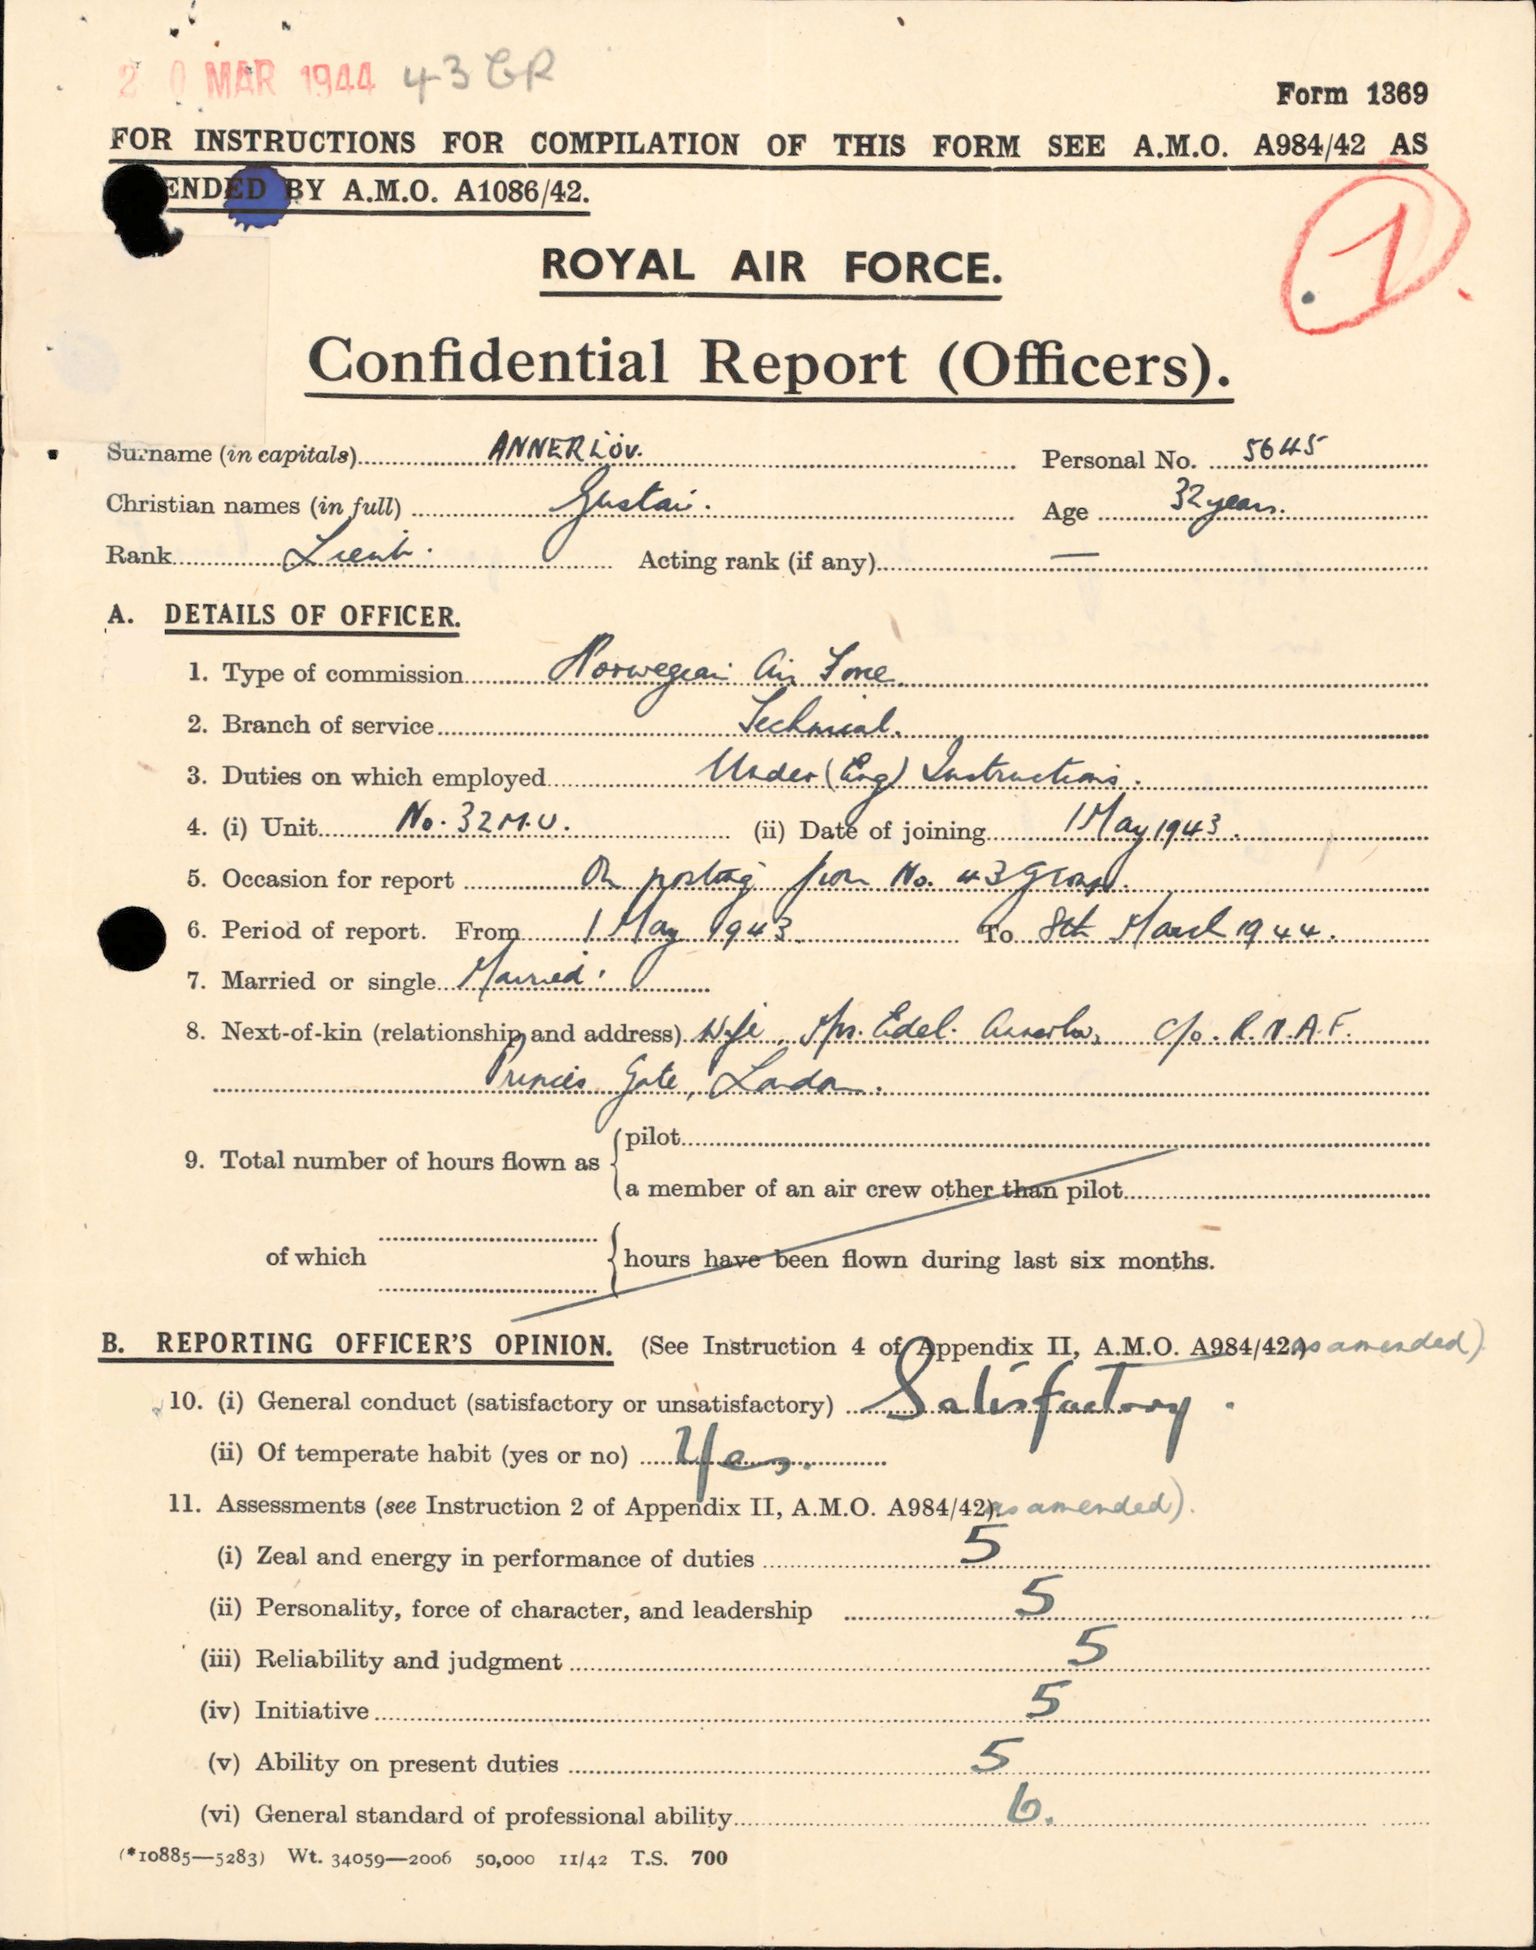 20 MAR 1944 43 GR
Form 1369
FOR INSTRUCTIONS FOR COMPILATION OF THIS FORM SEE A.M.O. A984/42 AS
ENDED BY A.M.O. A1086/42.
1
ROYAL AIR FORCE.
Confidential Report (Officers).
Surname (in capitals) ANNERLÖV. Personal No. 5645
Christian names (in full) Gustav. Age 32 years.
Rank Lieut. Acting rank (if any) —
A. DETAILS OF OFFICER.
1. Type of commission Norwegian Air Force
2. Branch of service Technical.
3. Duties on which employed Under (Eng) Instructions.
4. (i) Unit No. 32 M.U. (ii) Date of joining 1 May 1943.
5. Occasion for report On posting from No. 43 Group.
6. Period of report. From 1 May 1943. To 8th March 1944.
7. Married or single Married.
8. Next-of-kin (relationship and address) Wife, Mrs. Edel. Annerlov, c/o. R.N.A.F.
Princes Gate, London.
9. Total number of hours flown as { pilot
a member of an air crew other than pilot
of which { hours have been flown during last six months.
B. REPORTING OFFICER'S OPINION. (See Instruction 4 of Appendix II, A.M.O. A984/42.) as amended)
10. (i) General conduct (satisfactory or unsatisfactory) Satisfactory.
(ii) Of temperate habit (yes or no) Yes.
11. Assessments (see Instruction 2 of Appendix II, A.M.O. A984/42). as amended).
(i) Zeal and energy in performance of duties 5
(ii) Personality, force of character, and leadership 5
(iii) Reliability and judgment 5
(iv) Initiative 5
(v) Ability on present duties 5
(vi) General standard of professional ability 6.
(*10885—5283) Wt. 34059—2006 50,000 11/42 T.S. 700